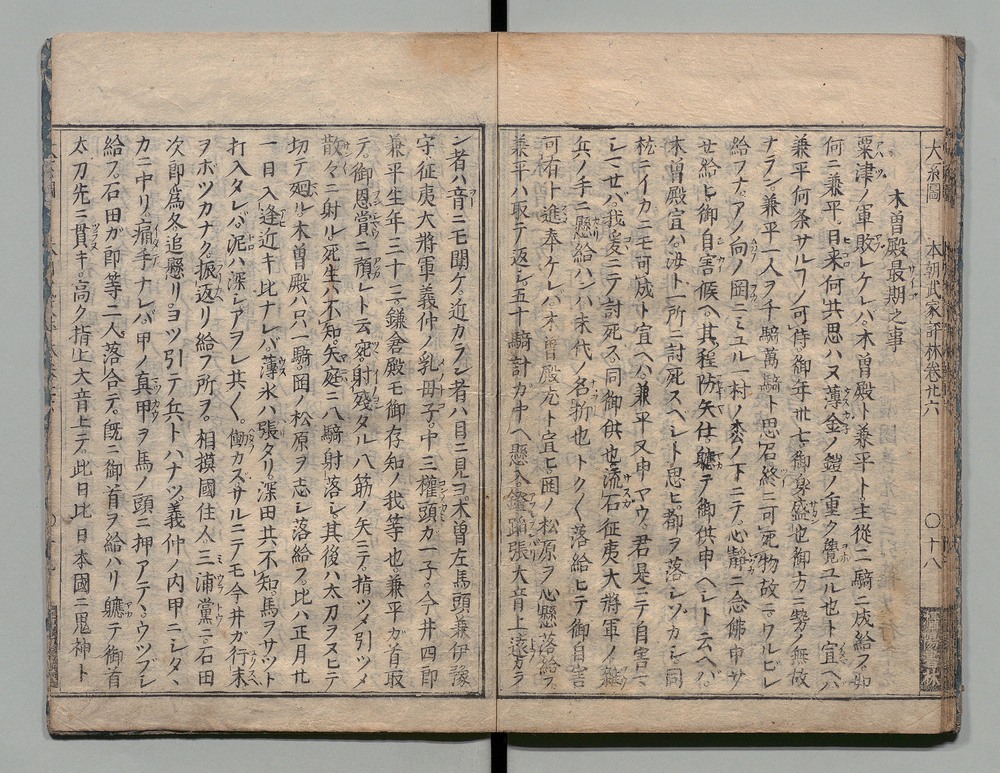 大系圖　本朝武家評林卷廿六　〇十八
木曽殿最期之事
粟津ノ軍敗レケレバ木曽殿ト兼平ト主從二騎ニ成給フ如
何ニ兼平日来何共思ハヌ薄金ノ鎧ノ重ク覺ユル也ト宣ヘバ
兼平何条サル事ノ可侍御年卅七御身盛也御方ニ勢ノ無故
ナラン兼平一人ヲ千騎萬騎ト思石終ニ可死物故ニワルビレ
給フナアノ向ノ岡ニミユル一村ノ松ノ下ニテ心靜ニ念佛申サ
セ給ヒ御自害候ヘ其程防矢仕軈テ御供申ヘシト云ヘバ
木曽殿宣ハ汝ト一所ニ討死スヘシト思ヒ都ヲ落シソカシ同
松ニイカニモ可成ト宣ヘハ兼平又申ヤウ君是ニテ自害
シマセバ我爰ニテ討死ス同御供也流石征夷大將軍ノ雜
兵ノ手ニ懸給ハン末代ノ名折也トク〱落給ヒテ御自害
可有ト進奉ケレバ木曽殿尤ト宣ヒ岡ノ松原ヲ心懸落給フ
兼平ハ取テ返シ五十騎計カ中ヘ懸入鐙蹈張大音上遠カラ
ン者ハ音ニモ聞ケ近カラン者ハ目ニ見ヨ木曽左馬頭兼伊豫
守征夷大將軍義仲ノ乳母子中三權頭ガ一子今井四郎
兼平生年三十三鎌倉殿モ御存知ノ我等也兼平ガ首取
テ御恩賞ニ預レト云宛射殘タル八筋ノ矢ニテ指ツメ引ツメ
散々ニ射ル死生ハ不知矢庭ニ八騎射落シ其後ハ太刀ヲヌヒテ
切テ廻ル木曽殿ハ只一騎岡ノ松原ヲ志シ落給フ比ハ正月廿
一日入逢近キ比ナレバ薄氷ハ張タリ深田共不知馬ヲサツト
打入タレバ泥ハ深シアヲレ共〱働カズサルニテモ今井ガ行末
ヲボツカナク振返リ給フ所ヲ相摸國住人三浦黨ニ石田
次郎爲久追懸リヨツ引テ兵トハナツ義仲ノ内甲ニシタヽ
カニ中リ痛手ナレバ甲ノ真甲ヲ馬ノ頭ニ押アテヽウツブシ
給フ石田ガ郎等二人落合テ既ニ御首ヲ給ハリ軈テ御首
太刀先ニ貫キ高ク指上大音上テ此日比日本國ニ鬼神ト